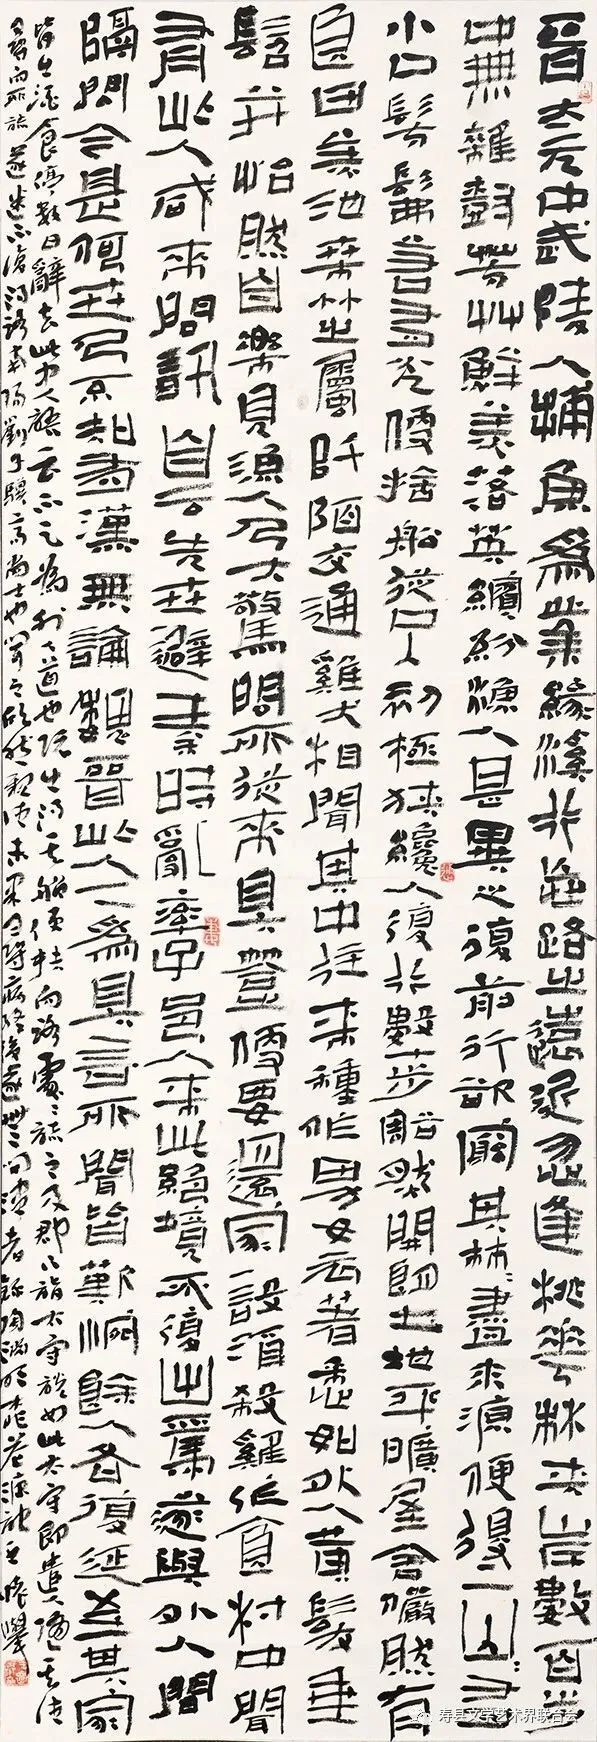 晉太元中武陵人捕魚為業緣溪行忘路之遠近忽逢桃花林夾岸數百步
中無雜樹芳草鮮美落英繽紛漁人甚異之復前行欲窮其林林盡水源便得一山山有
小口髣髴若有光便捨船從口入初極狹纔人復行數十步豁然開朗土地平曠屋舍儼然有
良田美池桑竹之屬阡陌交通雞犬相聞其中往來種作男女衣著悉如外人黃髮垂
髫并怡然自樂見漁人乃大驚問所從來具答便要還家設酒殺雞作食村中聞
有此人咸來問訊自云先世避秦時亂率子邑人來此絕境不復出焉遂與外人間
隔問今是何世乃不知有漢無論魏晉此人一一為具言所聞皆歎惋餘人各復延至其家
皆出酒食停數日辭去此中人語云不足為外人道也既出得其船便扶向路處處誌之及郡下詣太守說如此太守即遣人隨其往
尋向所誌遂迷不復得路南陽劉子驥高尚士也聞之欣然親往未果尋病終後遂無問津者錄陶淵明桃花源記
寿县文学艺术界联合会